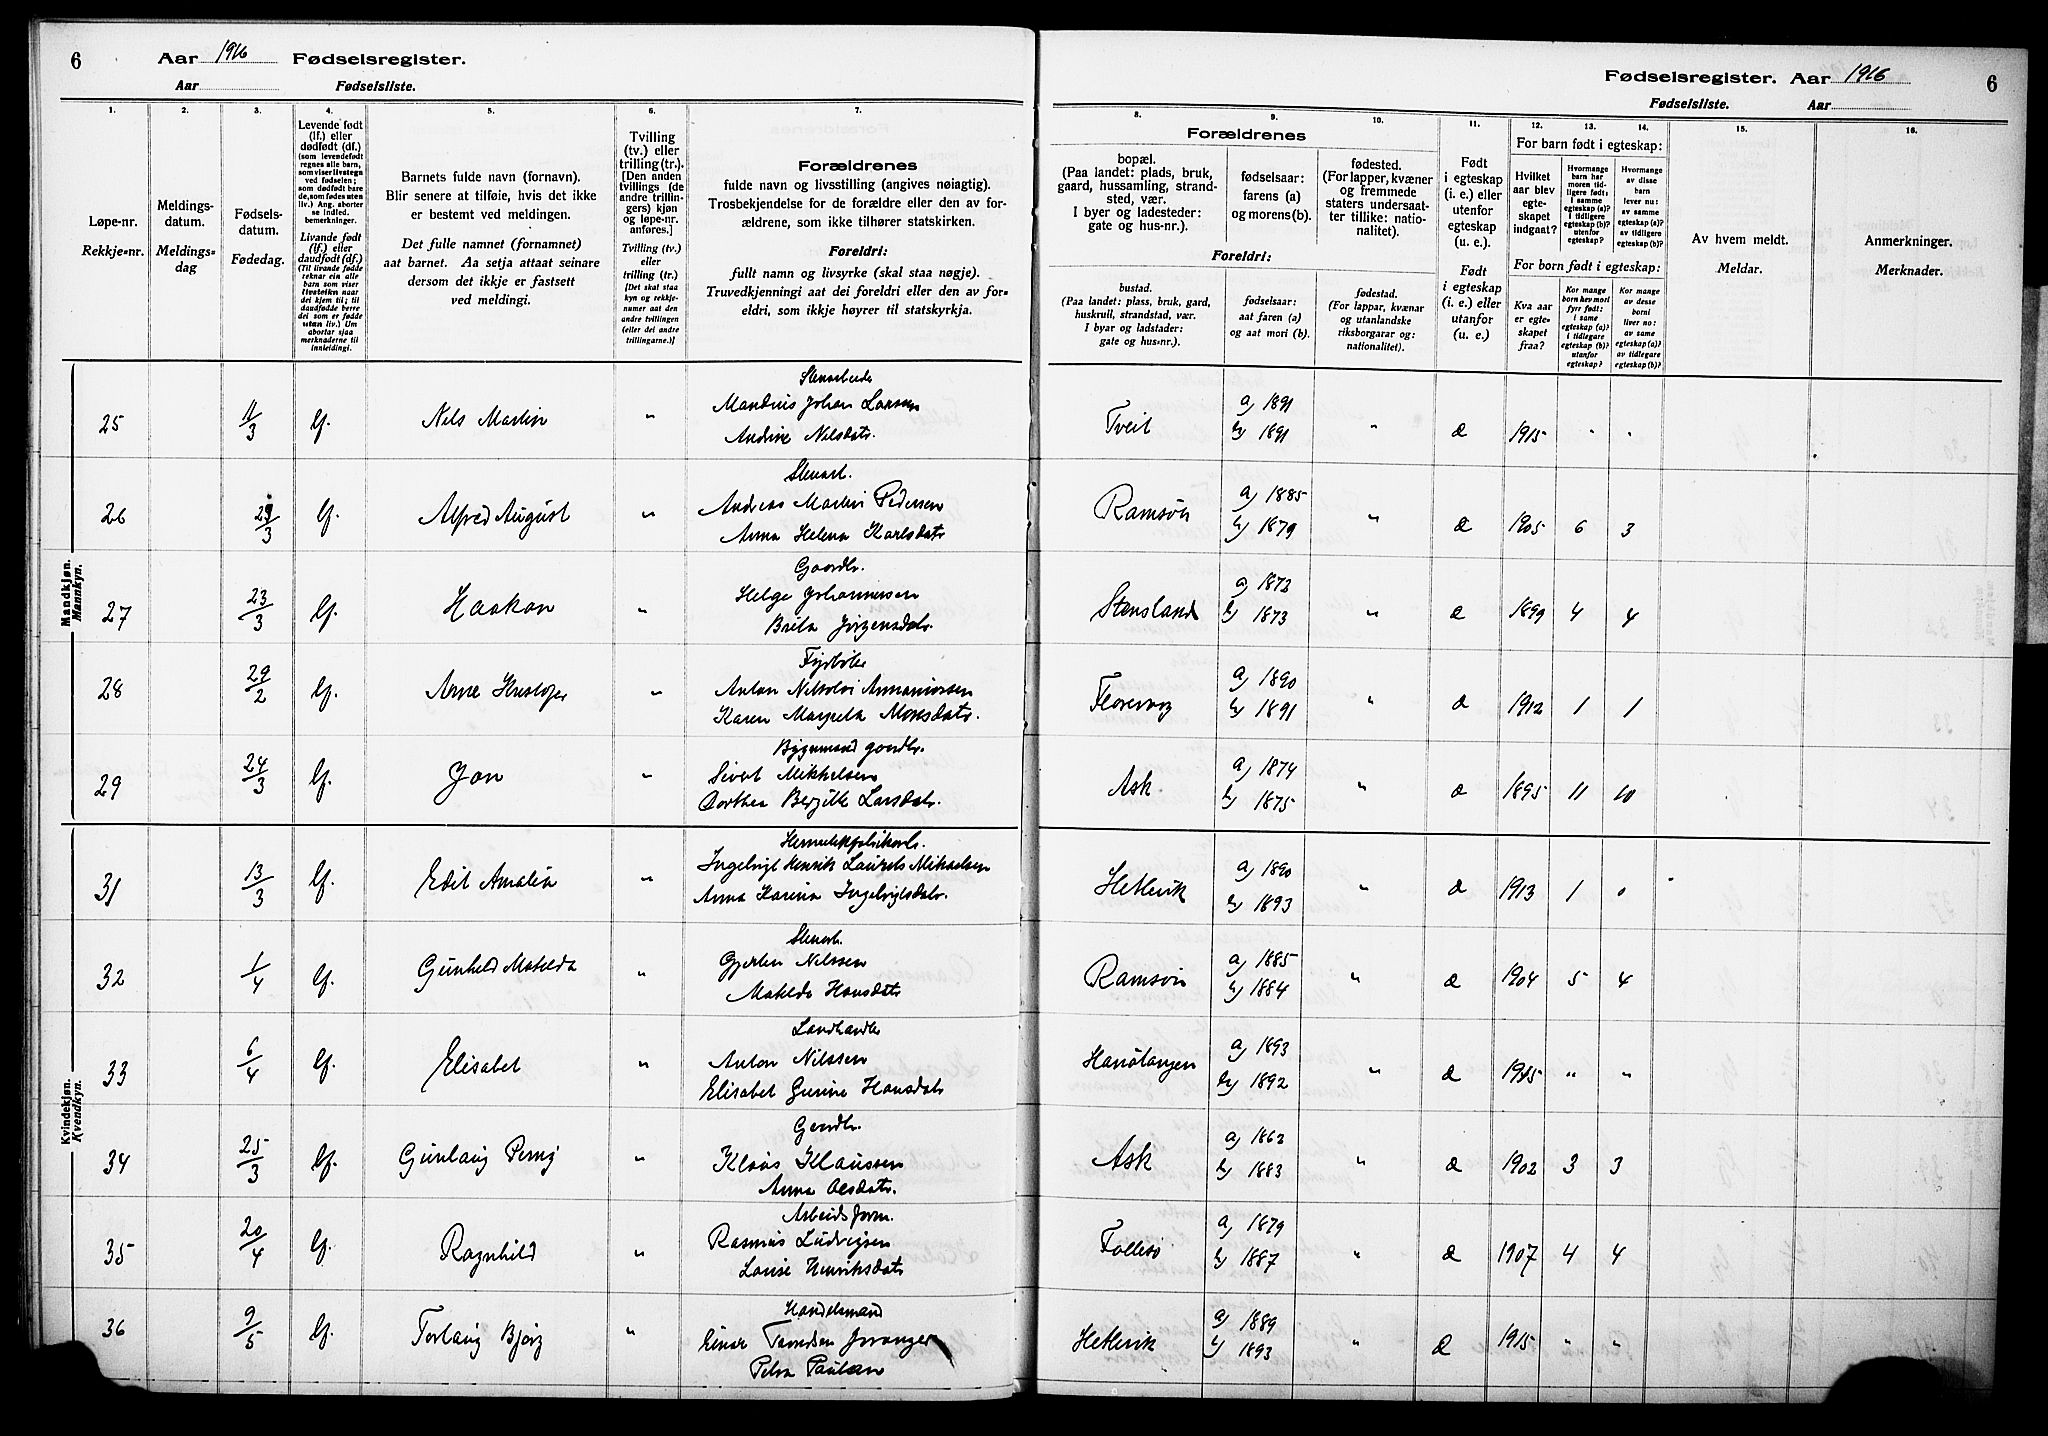 6 Aar 1916 Fødselsregister.
Aar Fødselsliste.
1. 2. 3. 4. 5. 6. 7.
Løpe-nr.
Rekkje-nr.
Meldings-
datum.
Meldings-
dag
Fødsels-
datum.
Fødedag.
Levende født
(lf.) eller
dødfødt (df.)
(som levendefødt
regnes alle barn,
som viser livstegn
ved fødselen;
som dødfødt bare
de, som fødes uten
liv.) Ang. aborter
se indled.
bemerkninger.
Livande født
(lf.) eller
daudfødt (df.)
(Til livande fødde
reknar ein alle
barn som viser
livsteikn naar
dei kjem til; til
daudfødde berre
dei som er fødde
utan liv.) Um
abortar sjaa
merknaderne til
innleidingi.
Barnets fulde navn (fornavn).
Blir senere at tilføie, hvis det ikke
er bestemt ved meldingen.
Det fulle namnet (fornamnet)
aat barnet. Aa setja attaat seinare
dersom det ikkje er fastsett
ved meldingi.
Tvilling
(tv.) eller
trilling (tr.).
[Den anden
tvillings (de
andre trillin-
gers) kjøn
og løpe-nr.
anføres.]
Tvilling (tv.)
eller
trilling (tr.)
[Det skal staa
kyn og rekkje-
numer aat den
andre tvillingen
(eller dei andre
trillingarne.)]
Forældrenes
fulde navn og livsstilling (angives nøiagtig).
Trosbekjendelse for de forældre eller den av for-
ældrene, som ikke tilhører statskirken.
Foreldri:
fullt namn og livsyrke (skal staa nøgje).
Truvedkjenningi aat dei foreldri eller den av for-
eldri, som ikkje høyrer til statskyrkja.
Mandkjøn.
Mannkyn.
25 11/3 lf. Nels Martin "
Mandius Johan Larsen
Andrine Nilsdatr.
26 29/3 lf. Alfred August "
Stenarb.
Andreas Martin Pedersen
Anna Helena Karlsdatr
27 23/3 lf. Haakon "
Gaardbr.
Helge Johannessen
Brita Jørgensdatr.
28 29/2 lf. Arne Kristofer "
Karen Margreta Monsdatr.
29 24/3 lf. Jon "
Bygmand gaardbr.
Sivert Mikkelsen
Dorthea Bergitte Larsdatr.
Kvindekjøn.
Kvendkyn.
31 13/3 lf. Edit Amalia "
Ingelvigt Henrik Laurets Mikaelsen
Anna Karina Ingelvigtsdatr.
32 1/4 lf. Gunhild Matilda "
Stenarb.
Gjertin Nilssen
Matilde Hansdatr
33 6/4 lf. Elisabet "
Landhandler
Anton Nilssen
Elisabet Gurine Hansdatr
34 25/3 lf. Gunlaug Perny "
Gardbr.
Klaus Klaussen
Anna Olsdatr.
35 20/4 lf. Ragnhild "
Arbeidsform.
Rasmus Ludvigsen
Louise Henriksdatr
36 9/5 lf. Torlaug Bjørg "
Handelsmand
Petra Paulsen
Fødselsregister. Aar 1916 6
Fødselsliste. Aar
8. 9. 10. 11. 12. 13. 14. 15. 16.
Forældrenes
bopæl.
(Paa landet: plads, bruk,
gaard, hussamling, strand-
sted, vær.
I byer og ladesteder:
gate og hus-nr.).
fødselsaar:
farens (a)
og morens (b).
fødested.
(For lapper, kvæner
og fremmede
staters undersaat-
ter tillike: natio-
nalitet).
Foreldri:
bustad.
(Paa landet: plass, bruk, gard,
huskrull, strandstad, vær.
I byar og ladstader:
gate og hus-nr.).
fødselsaar:
aat faren (a)
og aat mori (b).
fødestad.
(For lappar, kvænar
og utanlandske
riksborgarar og:
nationalitet).
Født
i egteskap
(i. e.) eller
utenfor
egteskap
(u. e.).
Født
i egteskap
(i. e.) eller
utanfor
(u. e.)
For barn født i egteskap:
Hvilket
aar blev
egte-
skapet
indgaat?
Hvormange
barn har
moren tid-
ligere født:
i samme
egteskap (a)?
i tidligere
egteskap (b)?
utenfor
egteskap?
Hvormange
av disse
barn
lever nu:
av samme
egteskap (a)?
av tidligere
egteskap (b)?
For born født i egteskap:
Kva aar
er egte-
skapet
fraa?
Kor mange
born hev mori
fyrr født:
i same
egteskap (a)?
i tidlegare
egteskap (b)?
utanfor
egteskap?
Kor mange
av desse
borni
liver no:
av same
egteskap (a)?
av tidlegare
egteskap (b)?
Av hvem meldt.
Meldar.
Anmerkninger.
Merknader.
Tveit a) 1891 b) 1891 " Æ 1915 " "
Ramsøn a) 1885 b) 1879 " Æ 1905 6 3
Stensland a) 1872 b) 1873 " Æ 1899 4 4
Florvaag a) 1890 b) 1891 " Æ 1912 1 1
Ask a) 1874 b) 1875 " Æ 1895 11 10
Hetlevik a) 1890 b) 1893 " Æ 1913 1 0
Ramsøn a) 1885 b) 1884 " Æ 1904 5 4
Hanøtangen a) 1893 b) 1892 " Æ 1915 " "
Ask a) 1862 b) 1883 " Æ 1902 3 3
Follesø a) 1879 b) 1887 " Æ 1907 4 4
Hetlevik a) 1889 b) 1893 " Æ 1915 " "